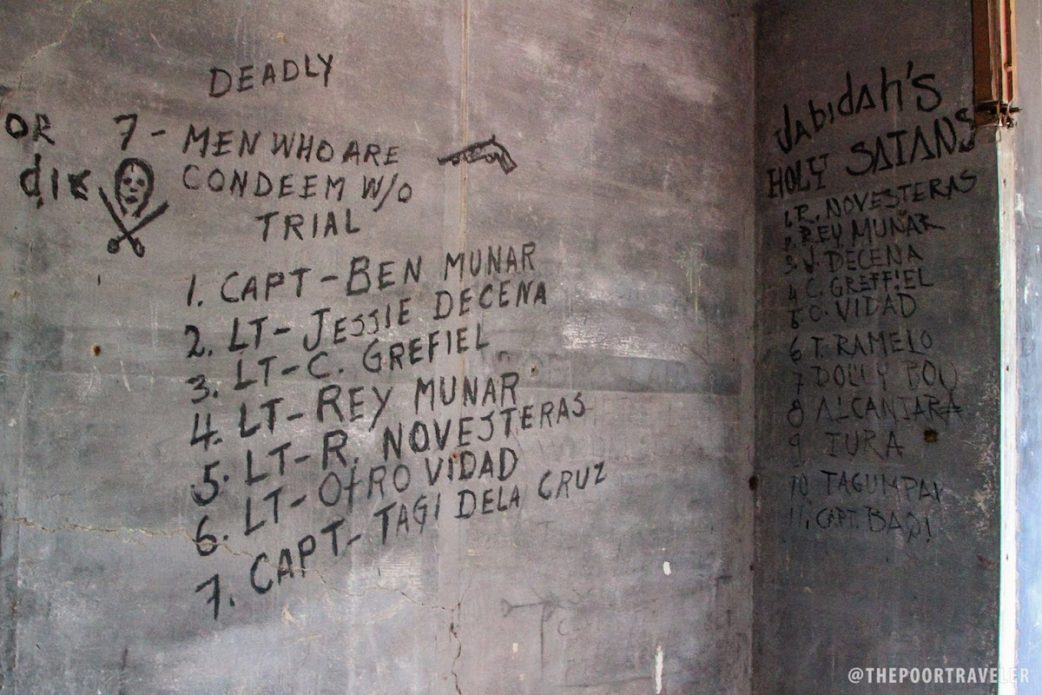 DEADLY
OR
die
7 - MEN WHO ARE
CONDEEM W/O
TRIAL
1. CAPT - BEN MUNAR
2. LT - JESSIE DECENA
3. LT - C. GREFIEL
4. LT - REY MUNAR
5. LT - R. NOVESTERAS
6. LT - OTRO VIDAD
7. CAPT - TAGI DELA CRUZ
Jabidah's
HOLY SATANS
1. R. NOVESTERAS
2. REY MUNAR
3 J. DECENA
4 C. GREFFIEL
5 O. VIDAD
6 T. RAMELO
7 DOLLY
8 ALCANTARA
9 TURA
10 TAGUMPAY
11. CAPT.
@THEPOORTRAVELER